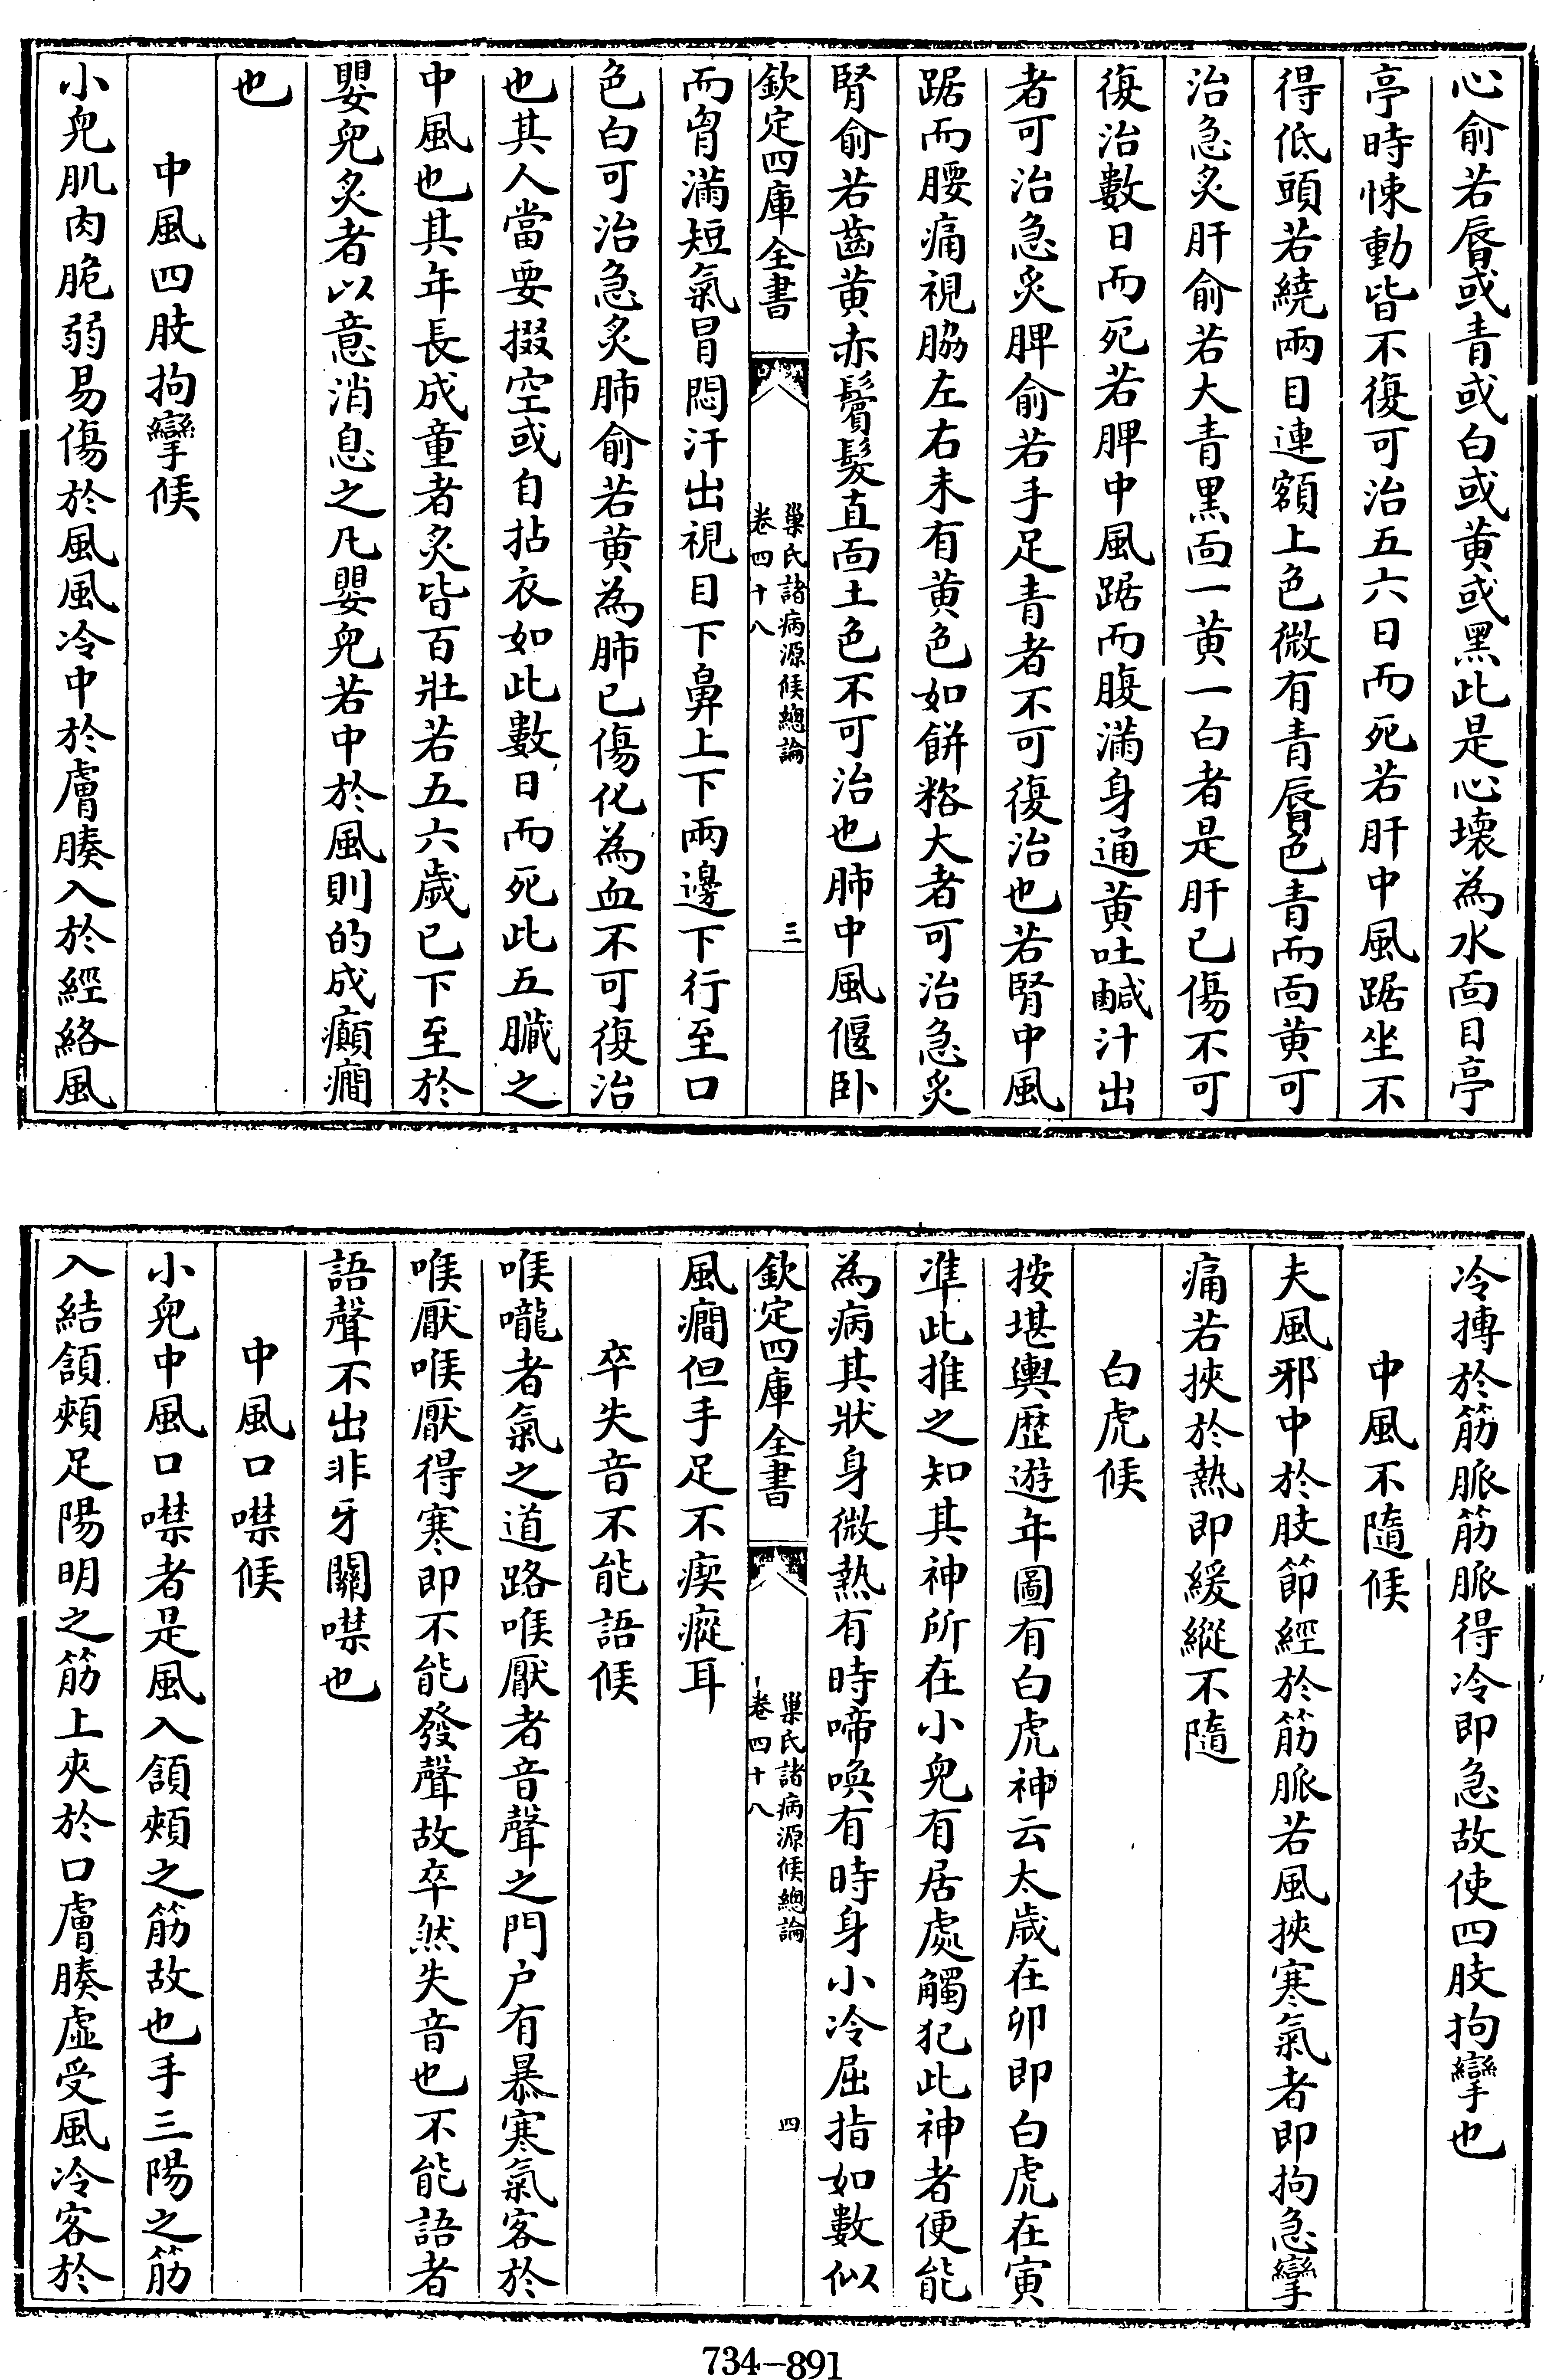 心俞若脣或青或白或黄或黑此是心壊為水面目亭
亭時悚動皆不復可治五六日而死若肝中風踞坐不
得低頭若繞兩目連額上色微有青脣色青而面黄可
治急炙肝俞若大青黒面一黄一白者是肝已傷不可
復治數日而死若脾中風踞而腹滿身通黄吐鹹汁出
者可治急炙脾俞若手足青者不可復治也若腎中風
踞而腰痛視脇左右未有黄色如餅粢大者可治急炙
腎俞若齒黄赤鬢髮直面土色不可治也肺中風偃卧
欽定四庫全書
巢氏諸病源候總論
卷四十八
三
而胷滿短氣冒悶汗出視目下鼻上下兩邊下行至口
色白可治急炙肺俞若黄為肺已傷化為血不可復治
也其人當要掇空或自拈衣如此數日而死此五臓之
中風也其年長成童者炙皆百壯若五六歲已下至於
嬰兒炙者以意消息之凡嬰兒若中於風則的成癲癇
也
中風四肢拘攣候
小兒肌肉脆弱易傷於風風冷中於膚腠入於經絡風
冷摶於筋脈筋脈得冷即急故使四肢拘攣也
中風不隨候
夫風邪中於肢節經於筋脈若風挾寒氣者即拘急攣
痛若挾於熱即緩縱不隨
白虎候
按堪輿歷遊年圖有白虎神云太歲在卯即白虎在寅
準此推之知其神所在小兒有居處觸犯此神者便能
為病其狀身微熱有時啼喚有時身小冷屈指如數似
欽定四庫全書
巢氏諸病源候總論
卷四十八
四
風癇但手足不瘈瘲耳
卒失音不能語候
喉嚨者氣之道路喉厭者音聲之門户有暴寒氣客於
喉厭喉厭得寒即不能發聲故卒然失音也不能語者
語聲不出非牙關噤也
中風口噤候
小兒中風口噤者是風入頷頰之筋故也手三陽之筋
入結頷頰足陽明之筋上夾於口膚腠虚受風冷客於
734-891